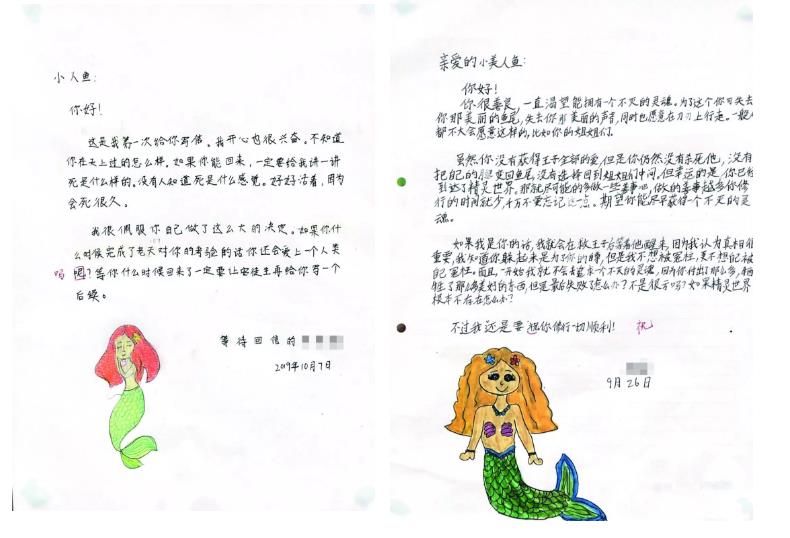 小人鱼：
你好！
这是我第一次给你写信。我开心也很兴奋。不知道
你在天上过的怎么样。如果你能回来，一定要给我讲一讲
死是什么样的。没有人知道死是什么感觉。好好活着，因为
会死很久。
我很佩服你自己做了这么大的决定。如果你什
么时候完成了老天对你的考验的话你还会爱上一个人类
吗？等你什么时候回来了一定要让安徒生再给你写一个
后续。
等待回信的
2019年10月7日
亲爱的小美人鱼：
你好！
你很善良，一直渴望能拥有一个不灭的灵魂。为了这个你可失去
你那美丽的鱼尾，失去你那美丽的声音，同时也愿意在刀刃上行走。一般人
都不大会愿意这样的，比如你的姐姐们。
虽然你没有获得王子全部的爱，但是你仍然没有杀死他，没有
把自己的腿变回鱼尾，没有选择回到姐姐们中间，但幸运的是，你已经
到达了精灵世界。那就尽可能的多做一些善事吧，做的善事越多你修
行的时间就少，千万不要忘记这一点。期望你能尽早获得一个不灭的灵
魂。
如果我是你的话，我就会在救王子后等着他醒来，因为我认为真相很
重要，我知道你躲起来是为了你的
但是我不想被冤枉，更不想已被
冤枉。而且一开始我就不去追求一个不灭的灵魂，因为你付出了那么多，牺
牲了那么美好的东西，但是最后失败了怎么办？不是很亏吗？如果精灵世界
根本不存在怎么办？
不过我还是要祝你修行一切顺利！
祝
9月26日